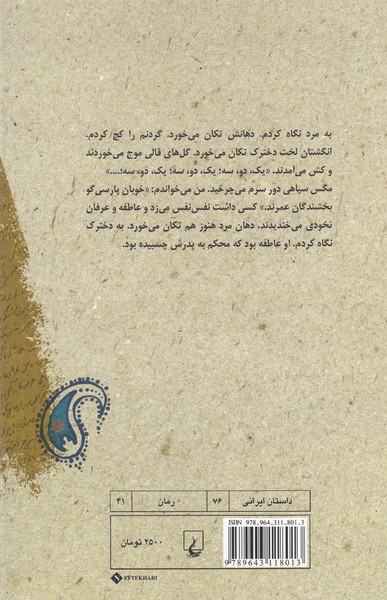 به مرد نگاه کردم. دهانش تکان می‌خورد. گردنم را کج کردم.
انگشتان لخت دخترک تکان می‌خورد. گل‌های قالی موج می‌خوردند
و کش می‌آمدند. «یک، دو، سه؛ یک، دو، سه؛ یک، دو، سه؛....»
مگس سیاهی دور سرم می‌چرخید. من می‌خواندم: «خوبان پارسی‌گو
بخشندگان عمرند.» کسی داشت نفس‌نفس می‌زد و عاطفه و عرفان
نخودی می‌خندیدند. دهان مرد هنوز هم تکان می‌خورد. به دخترک
نگاه کردم. او عاطفه بود که محکم به پدرش چسبیده بود.
داستان ایرانی ۷۶ رمان ۴۱
ISBN 978.964.311.801.3
۲۵۰۰ تومان
9789643118013
EFTEKHARI